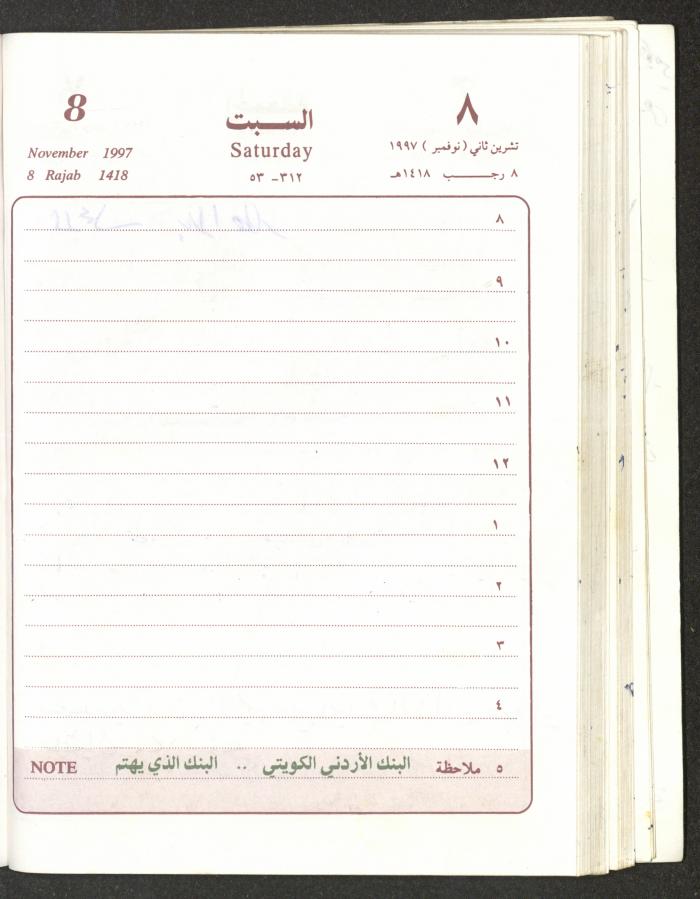 8 السبت ٨
November 1997 Saturday تشرين ثاني (نوفمبر) ١٩٩٧
8 Rajab 1418 ٣١٢ - ٥٣ ٨ رجب ١٤١٨هـ
٨
٩
١٠
١١
١٢
١
٢
٣
٤
٥ ملاحظة البنك الأردني الكويتي .. البنك الذي يهتم NOTE